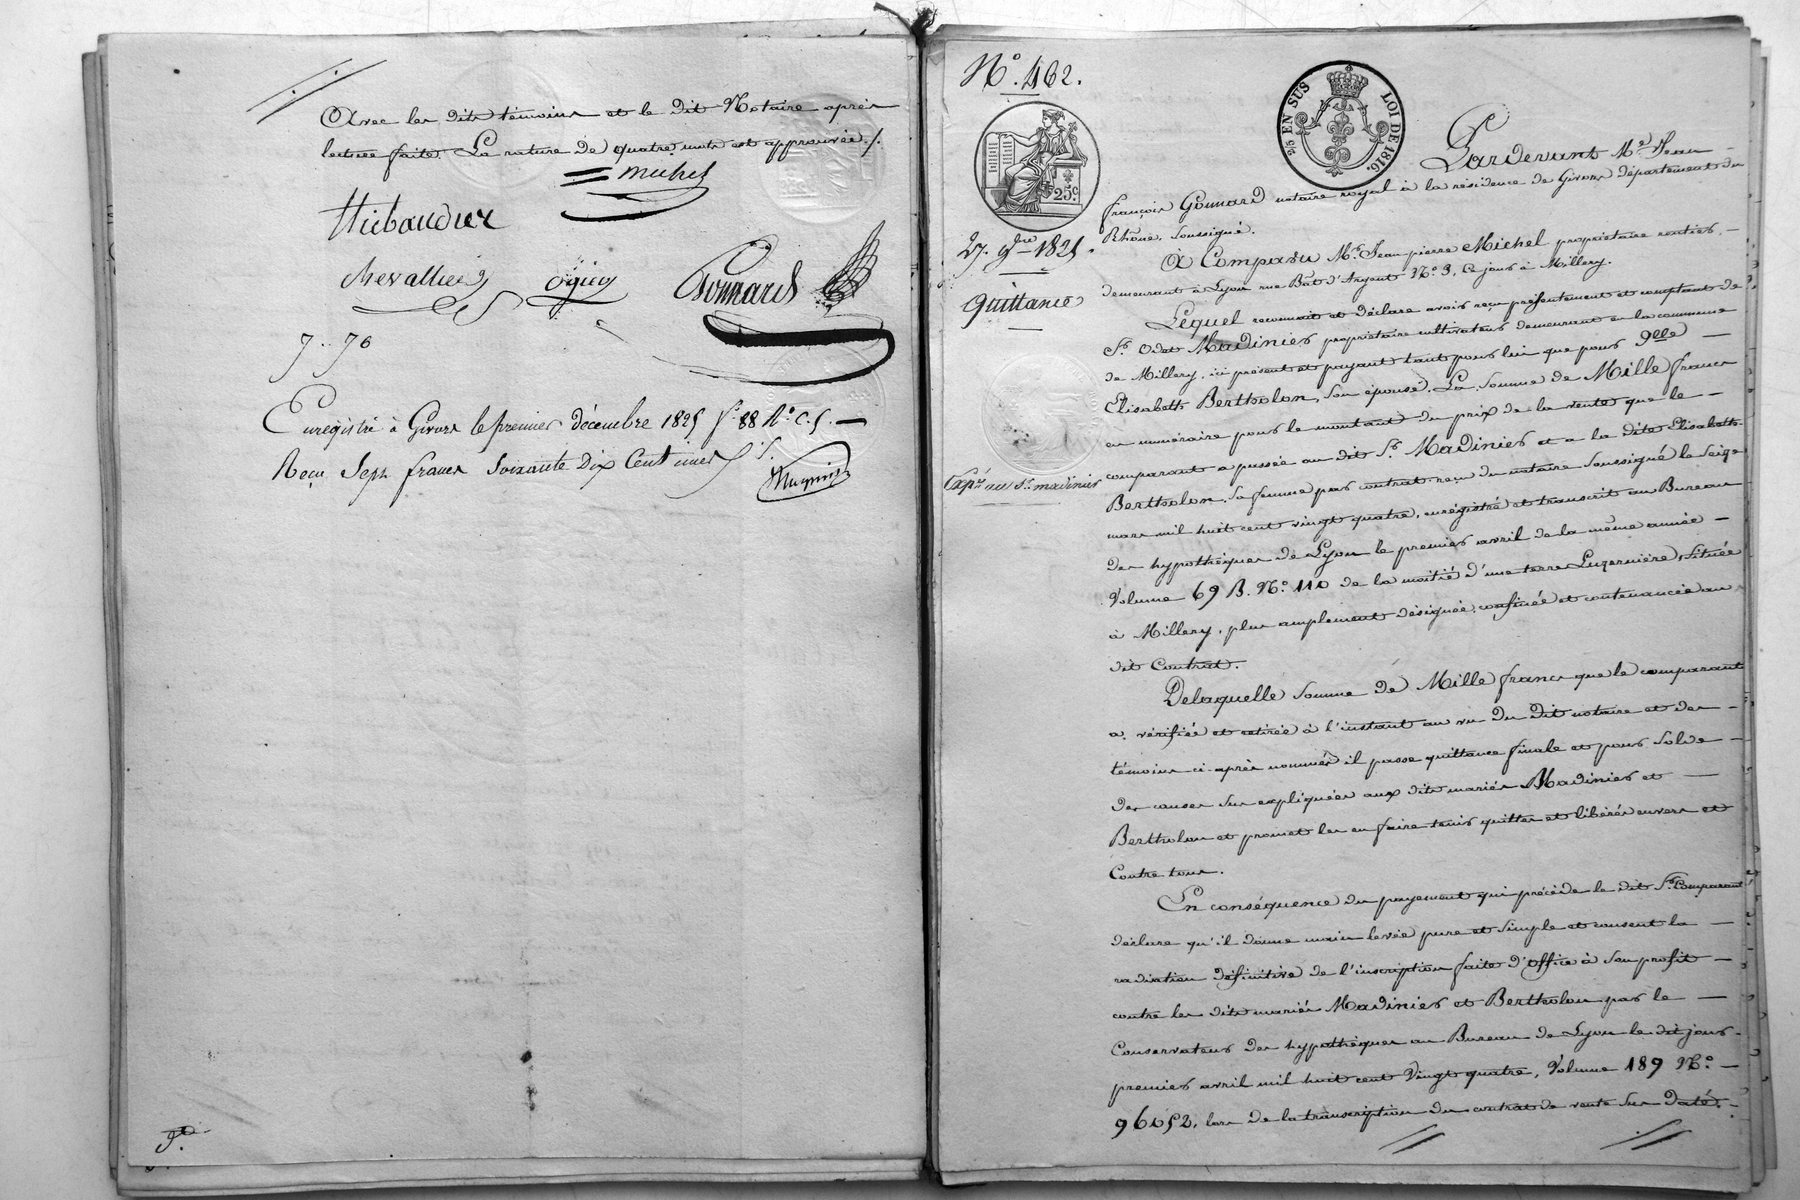 Avec les dits témoins et le dit Notaire après
lecture faite. La rature de quatre mots est approuvée ./.
Michel
Thibaudier
Chevallier
Gonnard
7.. 70
Enregistré à Givors le premier décembre 1825 f° 88 R° C. 5. —
Reçu Sept francs Soixante Dix Centimes
N° 462.
25c.
2/5 EN SUS LOI DE 1816.
27. 9bre 1825.
Quittance
Expon au Sr. Madinier
Pardevant Me. Jean
françois Gonnard notaire royal à la résidence de Givors département du
Rhône, soussigné.
A Comparu Mr. Jean pierre Michel propriétaire rentier, —
demeurant à Lyon rue Bât d'Argent N° 3, ce jour à Millery.
Lequel reconnait et déclare avoir reçu présentement et comptant de
Sr. Odet Madinier propriétaire cultivateur demeurant en la commune
de Millery, ici présent et payant tant pour lui que pour Dlle —
Elisabeth Bertholon, son épouse, La somme de Mille francs
en numéraire pour le montant du prix de la vente que le —
comparant a passée au dit Sr. Madinier et a la dite Elisabeth
Bertholon, sa femme par contrat reçu du notaire soussigné le seize
mars mil huit cent vingt quatre, enrégistré et transcrit au Bureau
des hypothèques de Lyon le premier avril de la même année —
Volume 69 B. N° 110 de la moitié d'une terre Luzernière, située
à Millery, plus amplement désignée, confinée et contenancée au
dit Contrat.
De laquelle somme de Mille francs que le comparant
a vérifiée et retirée à l'instant au vu du dit notaire et des —
témoins ci-après nommés il passe quittance finale et pour solde —
des causes sus expliquées aux dits mariés Madinier et —
Bertholon et promet les en faire tenir quittes et libérés envers et
Contre tous.
En conséquence du payement qui précède le dit Sr. Comparant
déclare qu'il donne main levée pure et simple et consent la —
radiation définitive de l'inscription faite d'Office à son profit —
contre les dits mariés Madinier et Bertholon par le —
Conservateur des hypothèques au Bureau de Lyon le dit jour
premier avril mil huit cent vingt quatre, Volume 189 N° —
96052, lors de la transcription du contrat de vente sus daté. -